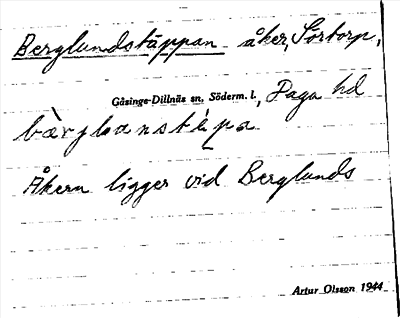 Berglundstäppan åker, Sörtorp,
Gåsinge-Dillnäs sn, Söderm. l., Daga hd
Åkern ligger vid Berglunds
Artur Olsson 1944